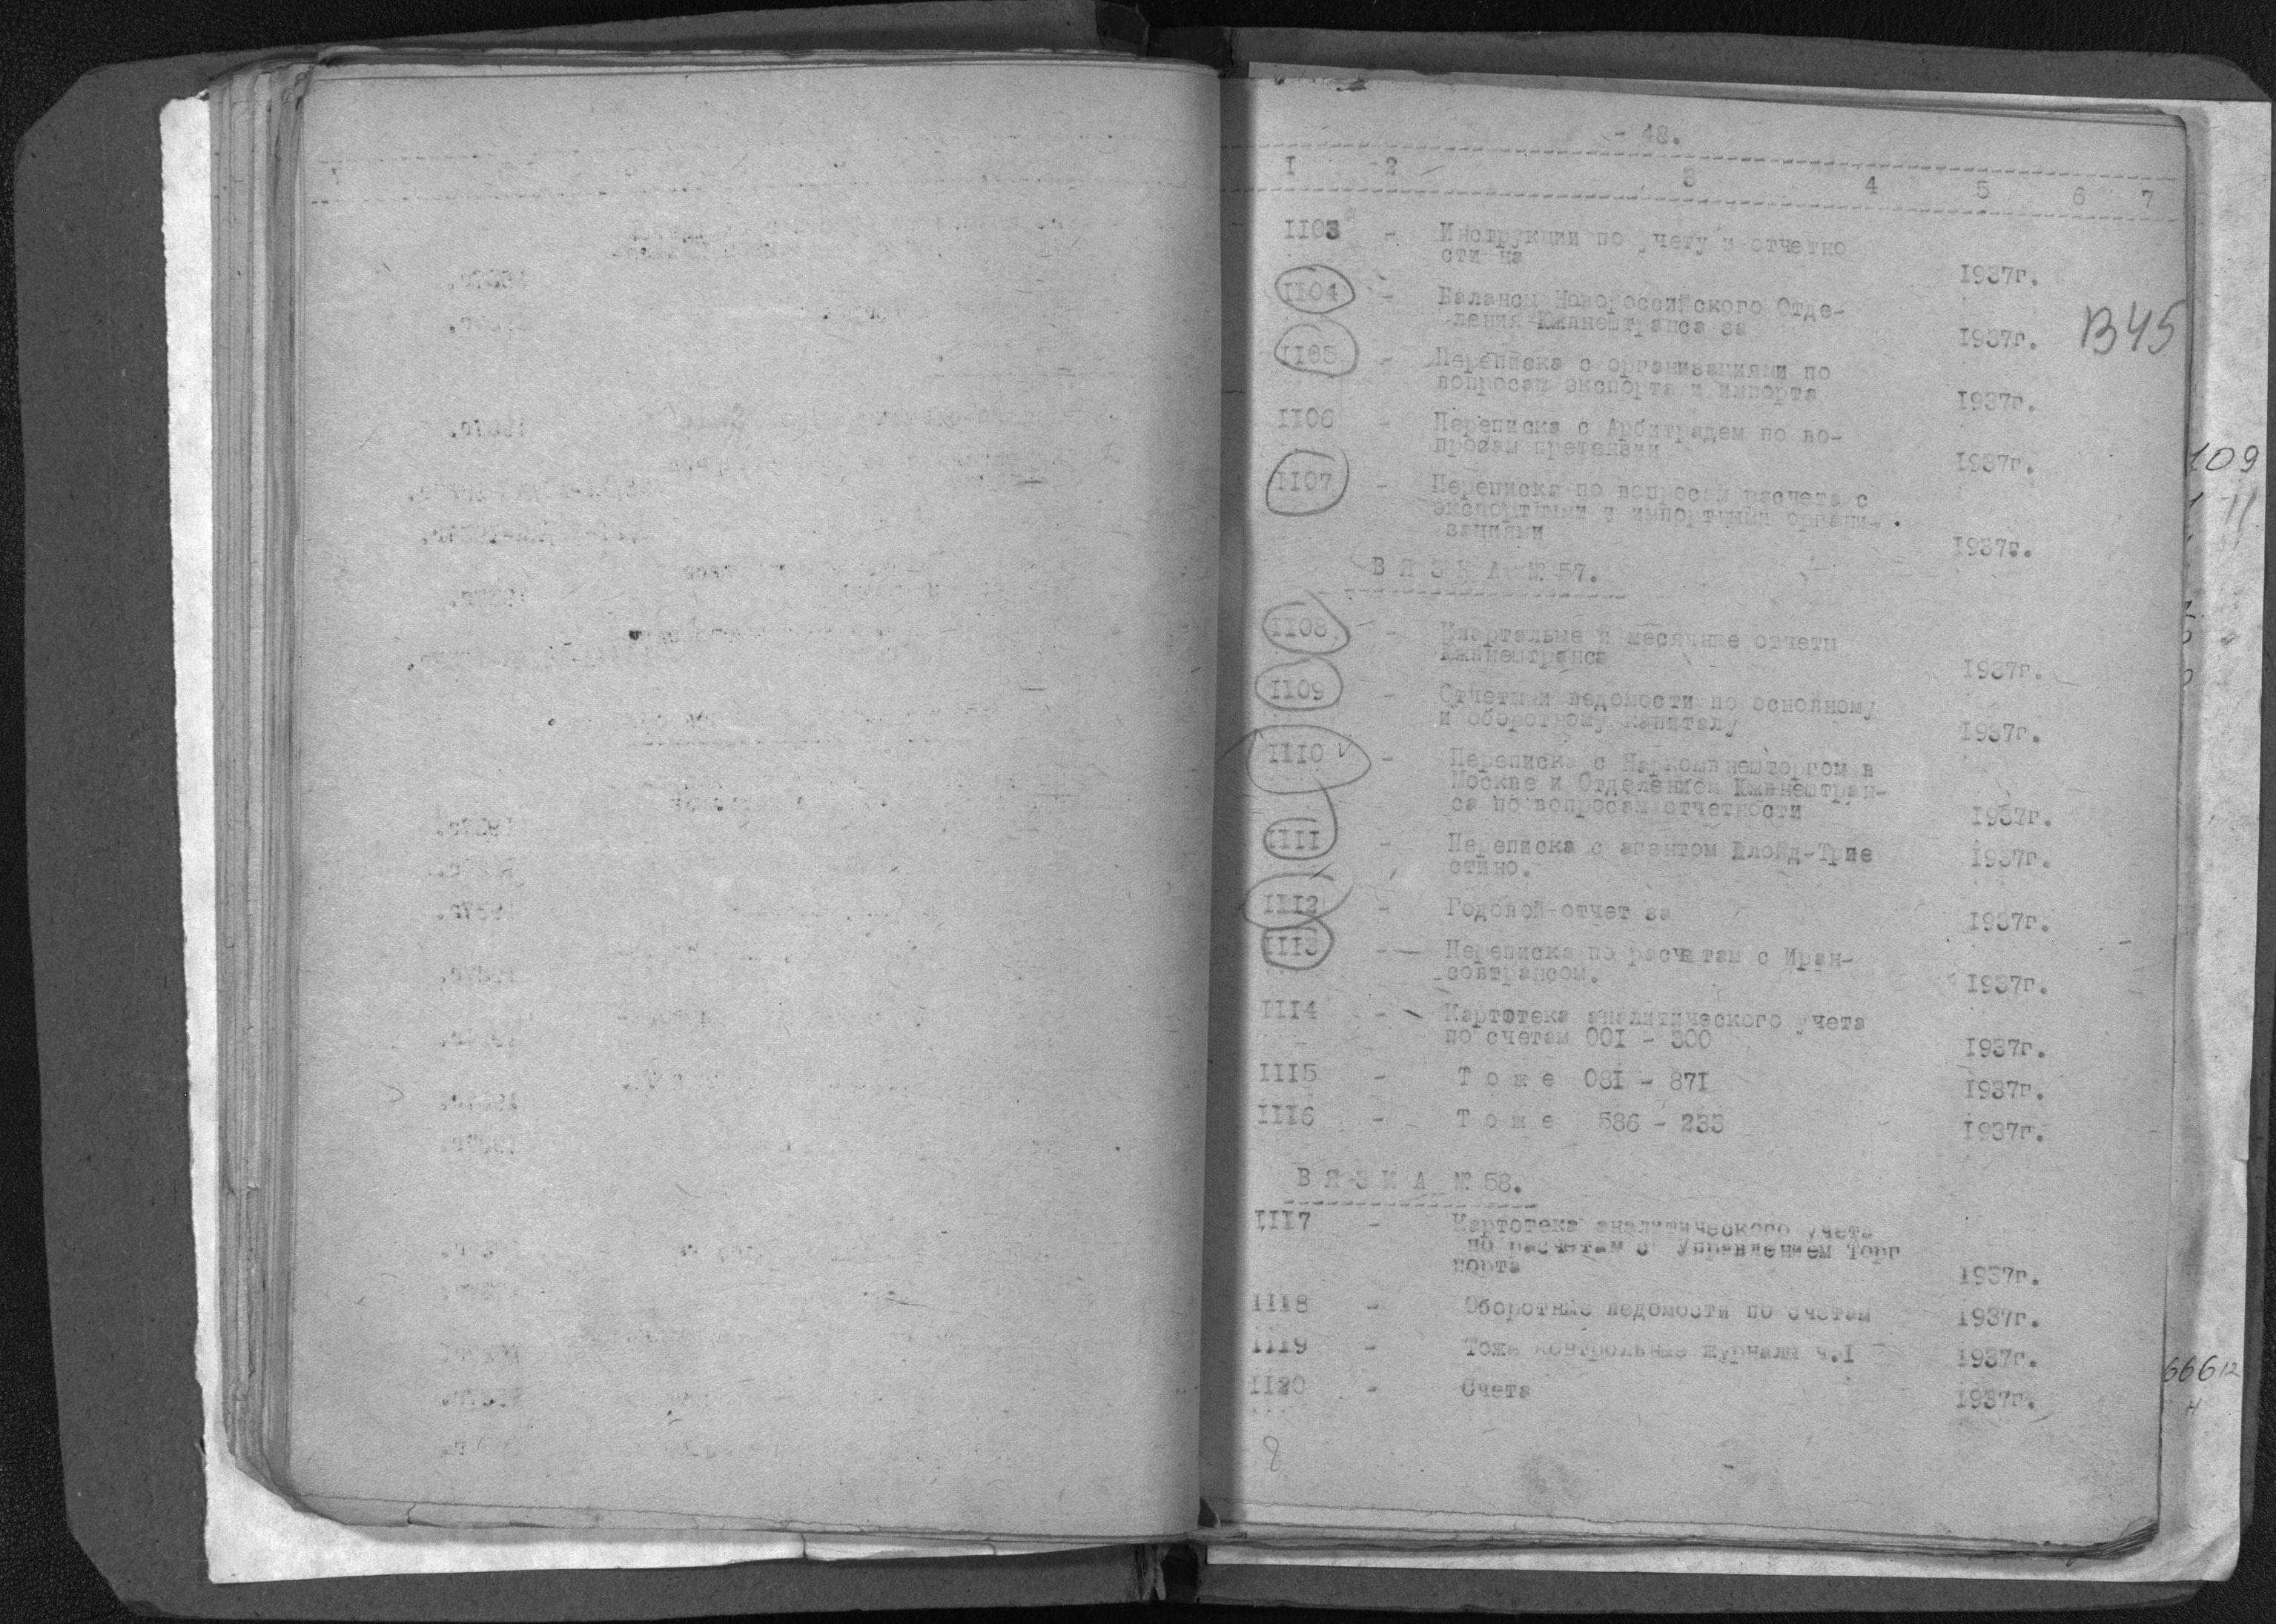 - 48.
I 2 3 4 5 6 7
II03 - Инструкции по учету и отчетно
сти на 1937г.
II04 - Балансы Новороссийского Отде-
ления Южвнештранса за 1937г. В45
II05 - Переписка с организациями по
вопросам экспорта и импорта 1937г.
II06 - Переписка с Арбитражем по во-
просам претензии 1937г.
109
II07 - Переписка по вопросам расчета с
экспортными и импортными органи-
зациями 1937г.
11
В Я З К А № 57.
II08 - Квартальные и месячные отчеты
Южвнештранса 1937г.
II09 - Отчеты и ведомости по основному
и оборотному капиталу 1937г.
III0 - Переписка с Наркомвнешторгом в
Москве и Отделением Южвнештран-
са по вопросам отчетности 1937г.
IIII - Переписка с агентом Ллойд-Трие 1937г.
стино.
III2 - Годовой отчет за 1937г.
III3 - Переписка по расчетам с Иран-
совтрансом. 1937г.
III4 - Картотека аналитического учета
по счетам 00I - 300 1937г.
III5 - Т о ж е 08I - 87I 1937г.
III6 - Т о ж е 586 - 233 1937г.
В Я З К А № 58.
III7 - Картотека аналитического учета
по расчетам с Управлением Торг
порта 1937г.
III8 - Оборотные ведомости по счетам 1937г.
III9 - Тоже контрольные журналы ч.I 1937г.
66612
II20 - Счета 1937г.
8